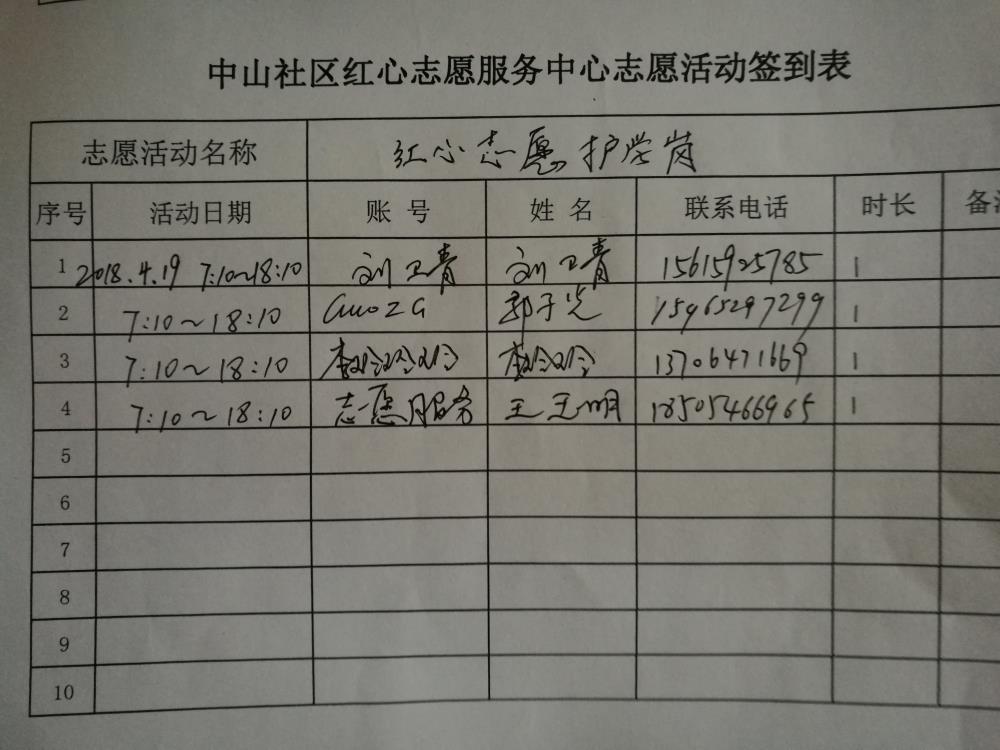 中山社区红心志愿服务中心志愿活动签到表
志愿活动名称 红心志愿护学岗
序号 活动日期 账号 姓名 联系电话 时长 备
1 2018.4.19 7:10~18:10 刘卫青 刘卫青 15615925785 1
2 7:10~18:10 GuoZG 郭子光 15965297299 1
3 7:10~18:10 13706471669 1
4 7:10~18:10 志愿服务 王玉明 18505466965 1
5
6
7
8
9
10